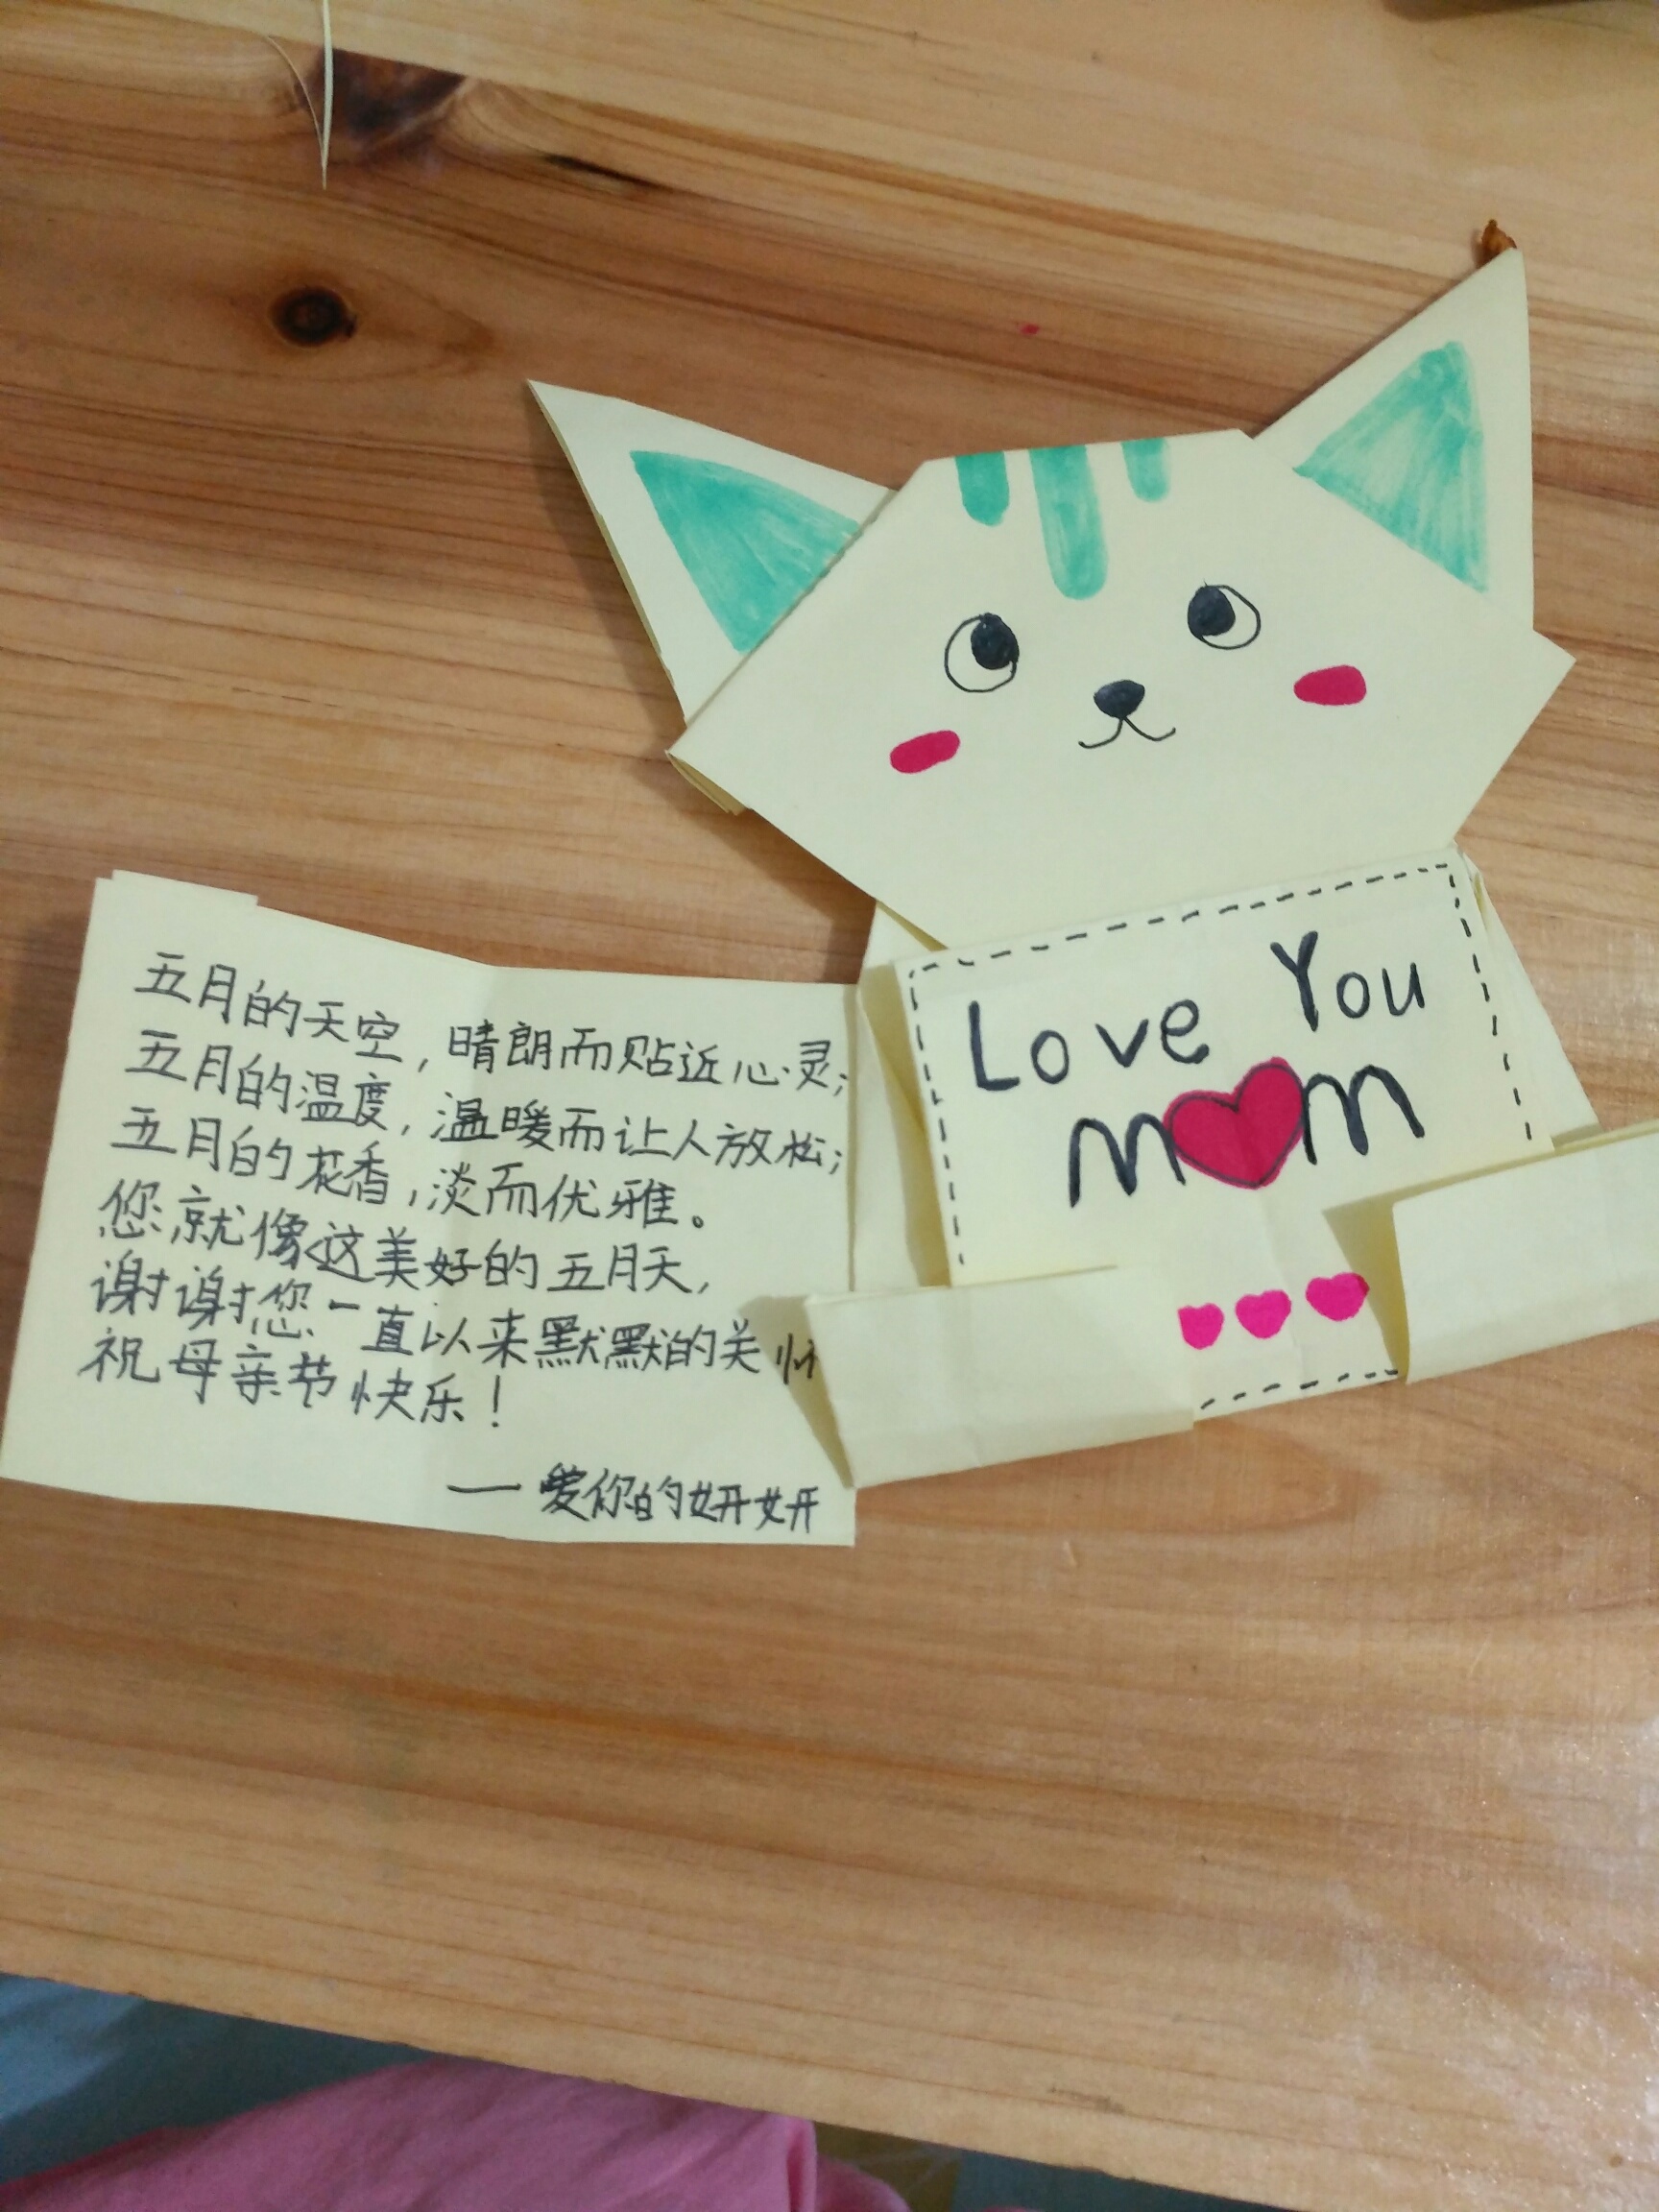 五月的天空,晴朗而贴近心灵;
五月的温度,温暖而让人放松;
五月的花香,淡而优雅。
您就像这美好的五月天,
谢谢您一直以来默默的关怀
祝母亲节快乐!
——爱你的妍妍
Love You
m♥m